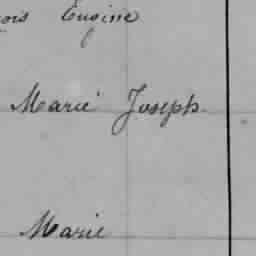 ois Eugène
Marie Joseph
Marie